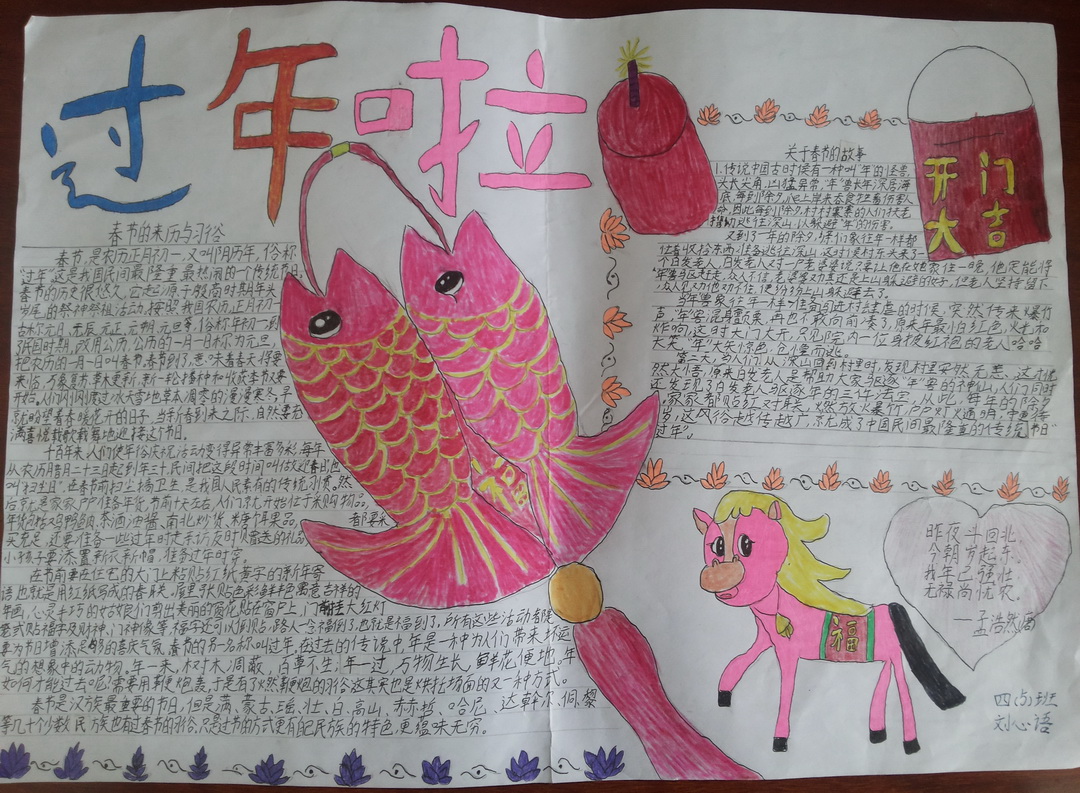 过年啦
春节的来历与习俗
春节,是农历正月初一,又叫阴历年,俗称
"过年"这是我国民间最隆重最热闹的一个传统节日,
春节的历史很悠久,它起源于殷商时期年头
岁尾的祭神祭祖活动,按照我国农历,正月初一
古称元日,元辰,元正,元朔,元旦等,俗称年初一,到
民国时期,改用公历,公历的一月一日称为元旦,
把农历的一月一日叫春节,春节到了,意味着春天将要
来临,万象复苏草木更新,新一轮播种和收获季节又要
开始,人们刚刚度过冰天雪地草木凋零的漫漫寒冬,早
就盼望着春暖花开的日子,当新春到来之际,自然要充
满喜悦载歌载舞地迎接这个节日。
千百年来,人们使年俗庆祝活动变得异常丰富多彩,每年
从农历腊月二十三日起到年三十,民间把这段时间叫做"迎春日"也
叫"扫尘日",在春节前扫尘搞卫生,是我国人民素有的传统习惯,然
后就是家家户户准备年货,节前十天左右,人们就开始忙于采购物品,
年货包括鸡鸭鱼肉、茶酒油酱、南北炒货、糖饵果品,都要采
买充足,还要准备一些过年时走亲访友时赠送的礼品,
小孩子要添置新衣新帽,准备过年时穿。
在节前要在住宅的大门上粘贴红纸黄字的新年寄
语也就是用红纸写成的春联,屋里张贴色彩鲜艳寓意吉祥的
年画,心灵手巧的姑娘们剪出美丽的窗花贴在窗户上,门前挂大红灯
笼或贴福字及财神、门神像等,福字还可以倒贴,路人一念福倒了,也就是福到了,所有这些活动都是
要为节日增添足够的喜庆气氛,春节的另一名称叫过年,在过去的传说中,年是一种为人们带来坏运
气的想象中的动物,年一来,树木凋蔽,百草不生;年一过,万物生长,鲜花遍地。年
如何才能过去呢?需用鞭炮轰,于是有了燃鞭炮的习俗这其实也是烘托场面的又一种方式。
春节是汉族最重要的节日,但是满、蒙古、瑶、壮、白、高山、赫哲、哈尼、达斡尔、侗、黎
等几十个少数民族也有过春节的习俗,只是过节的方式更有自己民族的特色,更蕴味无穷。
福
开门
大吉
关于春节的故事
1.传说中国古时候有一种叫"年"的怪兽,
头长尖角,凶猛异常,"年"兽长年深居海
底,每到除夕,爬上岸来吞食牲畜伤害人
命,因此每到除夕,村村寨寨的人们扶老
携幼,逃往深山,以躲避"年"的伤害。
又到了一年的除夕,乡亲们象往年一样都
忙着收拾东西准备逃往深山,这时候村东头来了一
个白发老人,白发老人对一户老婆婆说只要让他在她家住一晚,他定能将
"年"兽驱赶走,众人不信,老婆婆劝其还是上山躲避的好,但老人坚持留下
,众人见劝他不住,便纷纷上山躲避去了。
当"年"兽象往年一样准备闯进村肆虐的时候,突然传来爆竹
声,"年"兽混身颤栗,再也不敢向前凑了,原来"年"最怕红色,火光和
炸响,这时大门大开,只见院内一位身披红袍的老人哈哈
大笑,"年"大惊失色,仓惶而逃。
第二天,当人们从深山回到村里时,发现村里安然无恙,这才恍
然大悟,原来白发老人是帮助大家驱逐"年"兽的神仙,人们同时
还发现了白发老人驱逐"年"的三件法宝,从此,每年的除夕
,家家都贴红对联,燃放火暴竹,户户灯火通明,守更待
岁,这风俗越传越广,就成了中国民间最隆重的传统节日"
过年"。
昨夜斗回北,
今朝岁起东,
我年已强壮
无禄尚忧农。
—孟浩然《田
福
四点班
刘心语